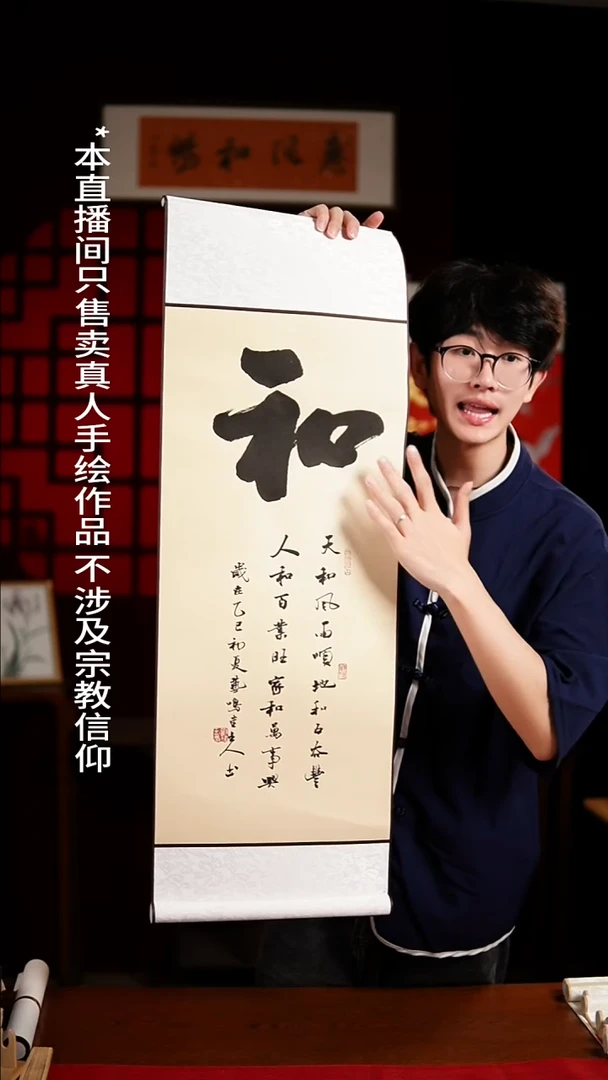 惠风和畅
*本直播间只售卖真人手绘作品 不涉及宗教信仰
和
天和风雨順地和五谷豐
人和百業旺家和萬事興
歲在乙巳初夏藝鳴堂主人书